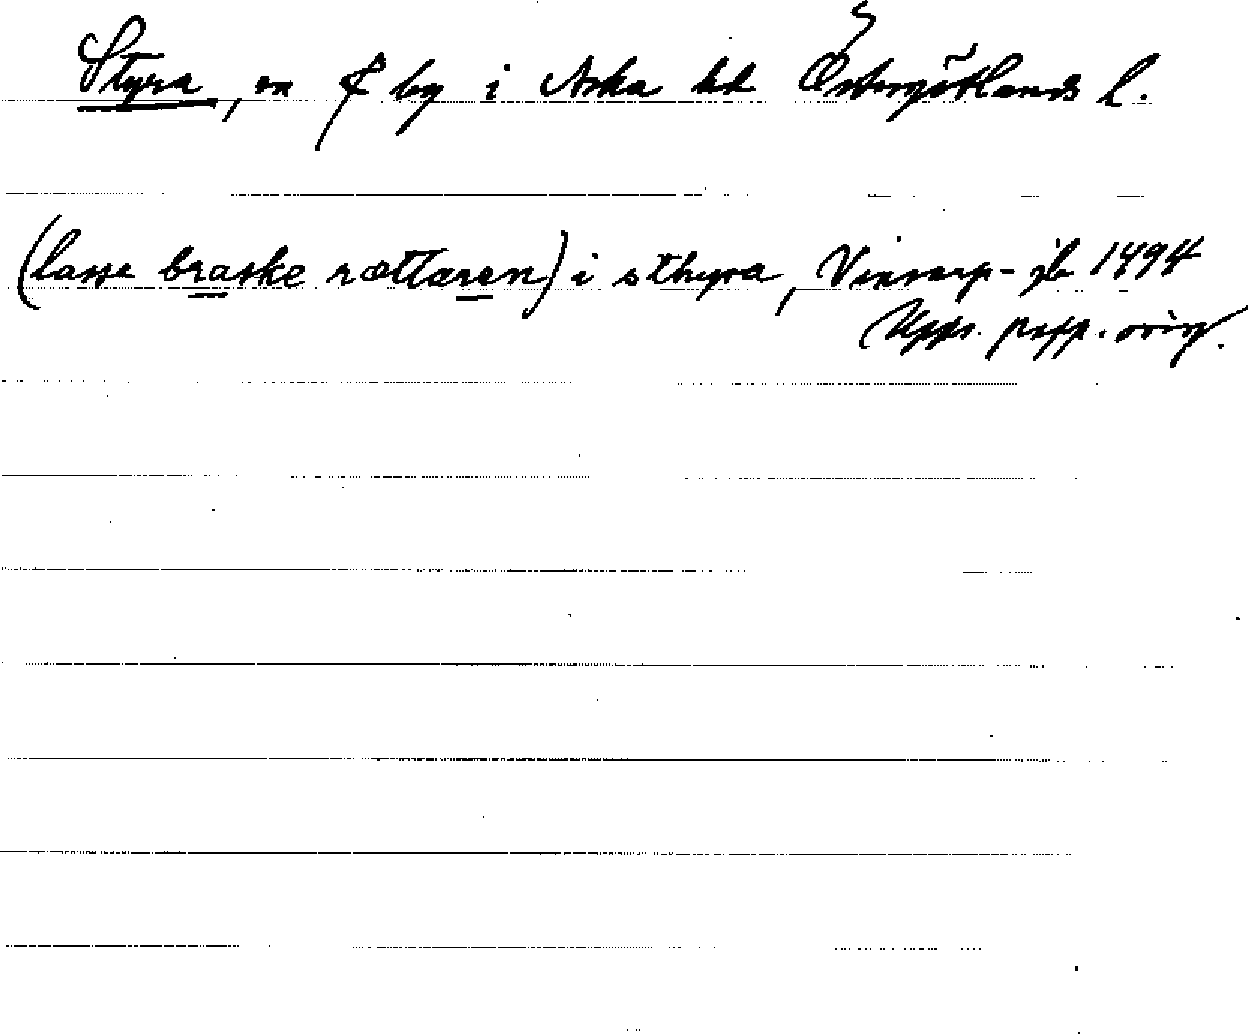 Styra, en f by i Aska hd Östergötlands l.
(lasse braske rættaren) i sthyra, Vinsarp-jb 1494
Upps. papp. orig.